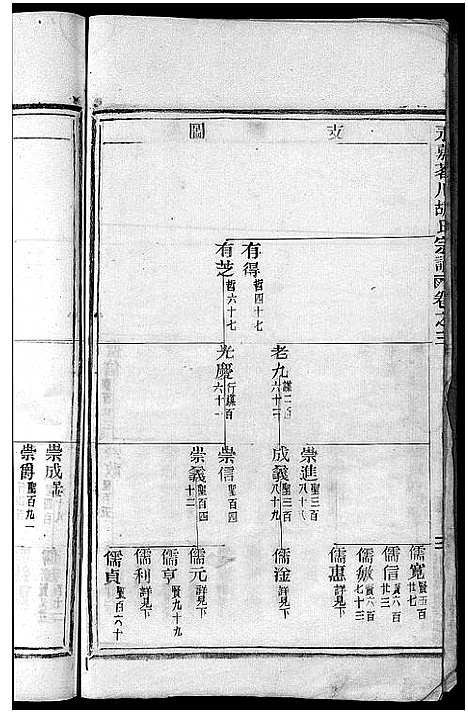 支圖
宗譜 卷之三
三
有得 哲四十七
有芝 哲六十七
老九 六廿三
光慶 行謀百六十一
崇進 聖三百八十八
成義 聖三百八十九
崇信 聖百四
崇義 聖百四十二
儒寬 賢五百廿七
儒信 賢六百廿三
儒傲 賢六百七十三
儒惠 詳見下
儒淦 詳見下
儒元 詳見下
儒亨 賢九十九
儒利 詳見下
儒貞 賢百六十
崇成
崇爵 聖百九一